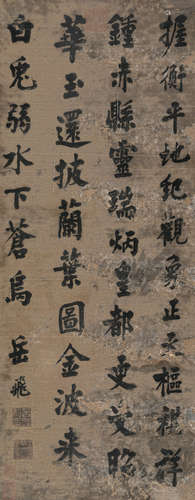 握衡平地紀觀象正天樞祺祥
鍾赤縣靈瑞炳皇都更文昭
華玉還披蘭葉圖金波来
白兎弱水下蒼烏 岳飛